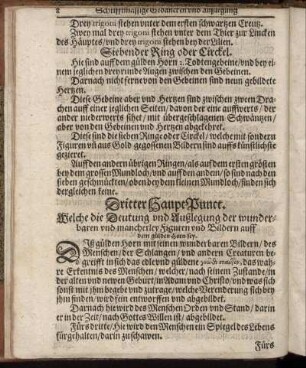 2 Schrifftmässige Gedancken und Außlegung
Drey trigoni stehen unter dem ersten schwartzen Creutz.
Zwey stehen unter dem Thier zur Lincken
des Häuptes/ und drey trigoni stehen bey der Lilien.
Siebender Ring oder Circkel.
Hie sind auff dem gülden Horn 2. Todtengebeine/ und bey ei-
nem jeglichen drey runde Augen zwischen den Gebeinen.
Darnach nicht ferne von den Gebeinen sind neun gebildete
Hertzen.
Diese Gebeine aber und Hertzen sind zwischen zween Dra-
chen auff einer jeglichen Seiten/ davon der eine auffwerts/ der
ander niederwerts sihet/ mit übergeschlagenen Schwäntzen/
aber von den Gebeinen und Hertzen abgekehret.
Diese sind die sieben Ringe oder Circkel/ welche mit sondern
Figuren uñ aus Gold gegossenen Bildern sind auffs künstlichste
gezieret.
Auff den andern übrigen Ringen/ als auff dem ersten grösten
bey dem grossen Mundloch/ und auff den andern/ so sind nach den
sieben geschmückten/ oben bey dem kleinen Mundloch/ finden sich
dergleichen keine.
Dritter Haupt-Punct.
Welche die Deutung und Außlegung der wunder-
baren und mancherley Figuren und Bildern auff
dem gülden Horn sey.
DAs gülden Horn mit seinen wunderbaren Bildern/ des
Menschen/ der Schlangen/ und andern Creaturen be-
greifft in sich das edele und güldene das wah-
re Erkentnis des Menschen/ welcher/ nach seinem Zustande/ in
der alten und neuen Geburt/ in Adam und Christo/ und was sich
sonst mit ihm begebe und zutrage/ welche Verenderung sich bey
ihm finden/ wird fein entworffen und abgebildet.
Darnach hie wird des Menschen Orden und Stand/ darin
er in der Zeit/ nach Gottes Willen ist/ abgebildet.
Fürs dritte/ Hie wird den Menschen ein Spiegel des Lebens
fürgehalten/ darin zuschawen.
Fürs